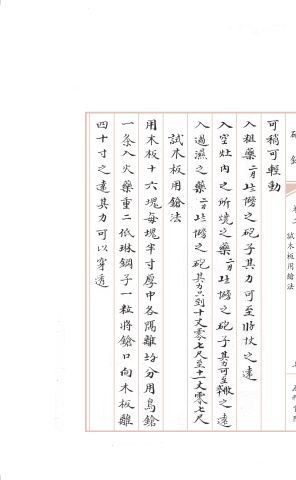 卷二 試木板用鎗法
可稍可輕動
入粗藥之砲子其力可至之遠
入空灶內之所燒之藥之砲子其力可至之遠
入過濕之藥之砲其力只到十丈零七尺至十一丈零七尺
試木板用鎗法
用木板十六塊每塊半寸厚中各隔離分用鳥鎗
一条入火藥重二低琳鋼子一粒將鎗口向木板離
四十寸之遠其力可以穿透